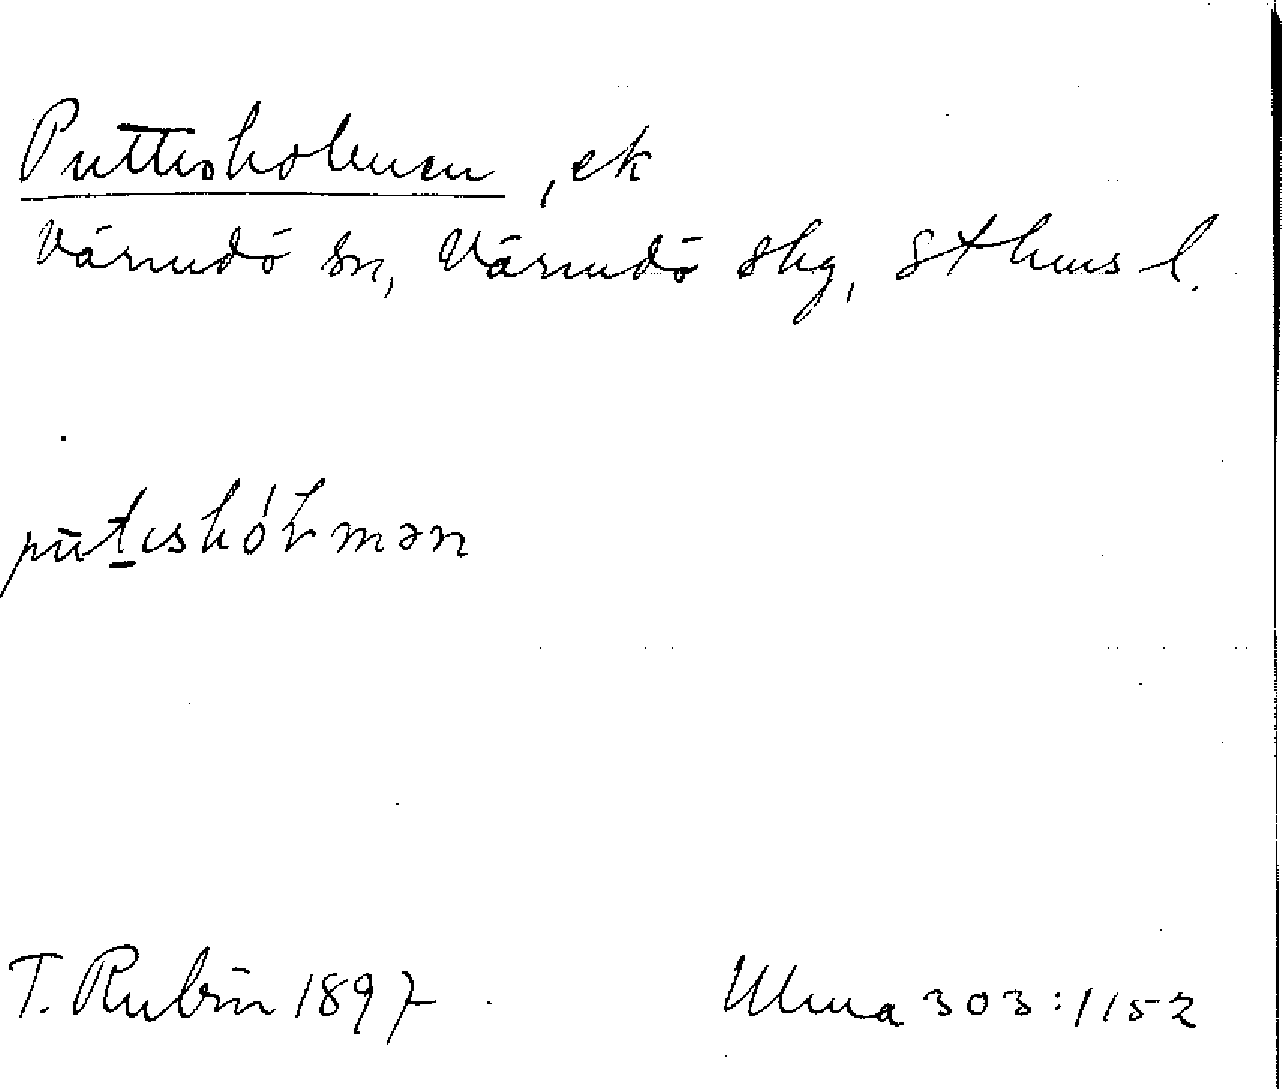 Puttisholmen, ek
Värmdö sn, Värmdö skg, Sthms l.
pūtıshóƚmən
T. Rubin 1897
Ulma 303:1152